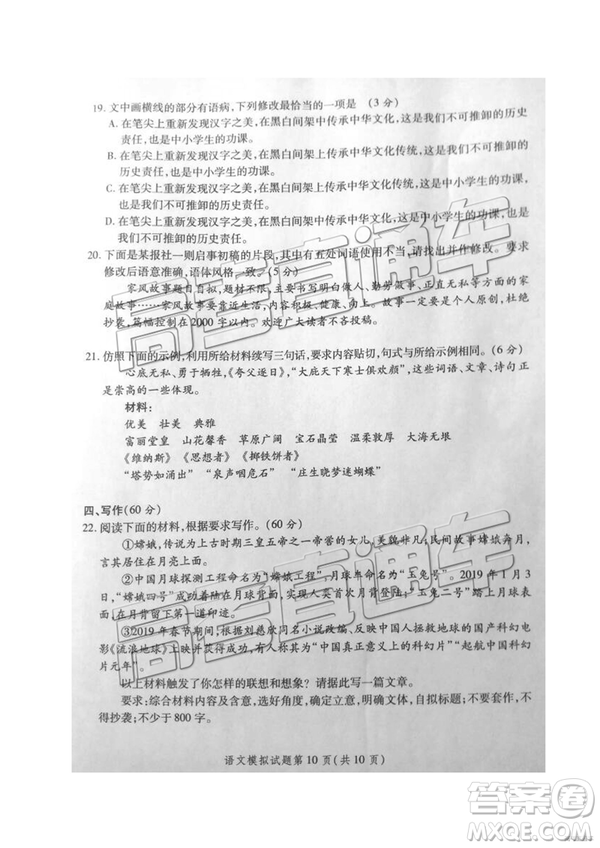 19. 文中画横线的部分有语病,下列修改最恰当的一项是 (3分)
A. 在笔尖上重新发现汉字之美,在黑白间架中传承中华文化,这是我们不可推卸的历史
责任,也是中小学生的功课。
B. 在笔尖上重新发现汉字之美,在黑白间架中传承中华文化传统,这是我们不可推卸的
历史责任,也是中小学生的功课。
C. 在笔尖上重新发现汉字之美,在黑白间架上传承中华文化传统,这是中小学生的功课,
也是我们不可推卸的历史责任。
D. 在笔尖上重新发现汉字之美,在黑白间架中传承中华文化,这是中小学生的功课,也是
我们不可推卸的历史责任。
20. 下面是某报社一则启事初稿的片段,其中有五处词语使用不当,请找出并作修改。要求
修改后语意准确,语体风格一致。(5分)
家风故事题目自拟,题材不限。主要书写为人
家庭故事……家风故事要真实,内容积极、健康、向上。故事一定要是个人原创,杜绝
抄袭,篇幅控制在2000字以内。欢迎广大读者不吝投稿。
21. 仿照下面的示例,利用所给材料续写三句话,要求内容贴切,句式与所给示例相同。(6分)
心底无私、勇于牺牲,《夸父逐日》,“大庇天下寒士俱欢颜”,这些词语、文章、诗句,正
是崇高的一些体现。
材料:
优美 壮美 典雅
富丽堂皇 山花馨香 草原广阔 宝石晶莹 温柔敦厚 大海无垠
《维纳斯》 《思想者》 《掷铁饼者》
“塔势如涌出” “泉声咽危石” “庄生晓梦迷蝴蝶”
四、写作(60分)
22. 阅读下面的材料,根据要求写作。(60分)
①嫦娥,传说为上古时期三皇五帝之一的帝喾的女儿,美貌非凡。民间故事嫦娥奔月,
②中国月球探测工程命名为“嫦娥工程”,月球车命名为“玉兔号”。2019年1月3
日,“嫦娥四号”成功着陆在月球背面,实现人类首次月球背面软着陆,“玉兔二号”踏上月球表
面,在月背留下了第一道印迹。
③2019年春节期间,根据刘慈欣同名小说改编、反映中国人拯救地球的国产科幻电
影《流浪地球》上映获得如潮好评,业内人士称其为“中国真正意义上的科幻片”“起航中国科
幻片元年”。
以上材料触发了你怎样的联想和想象?请据此写一篇文章。
要求:综合材料内容及含意,选好角度,确定立意,明确文体,自拟标题;不要套作,不
得抄袭;不少于800字。
语文模拟试题第10页(共10页)
高考直通车
高考直通车
答案圈
MXQE.COM